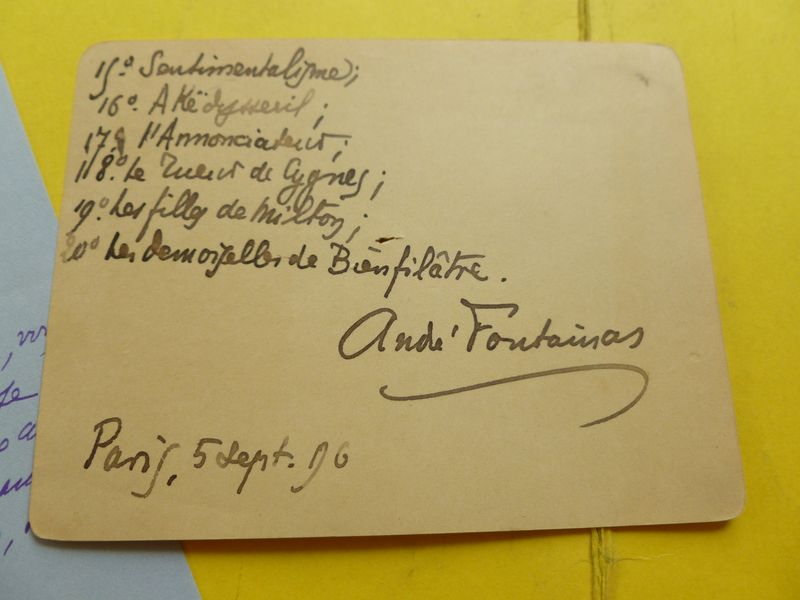 15º Sentimentalisme;
16º. Akëdysseril;
17º l'Annonciateur;
18º. Le Tueur de Cygnes;
19º. Les filles de Milton;
20º Les demoiselles de Bienfilâtre.
André Fontainas
Paris, 5 Sept. 96